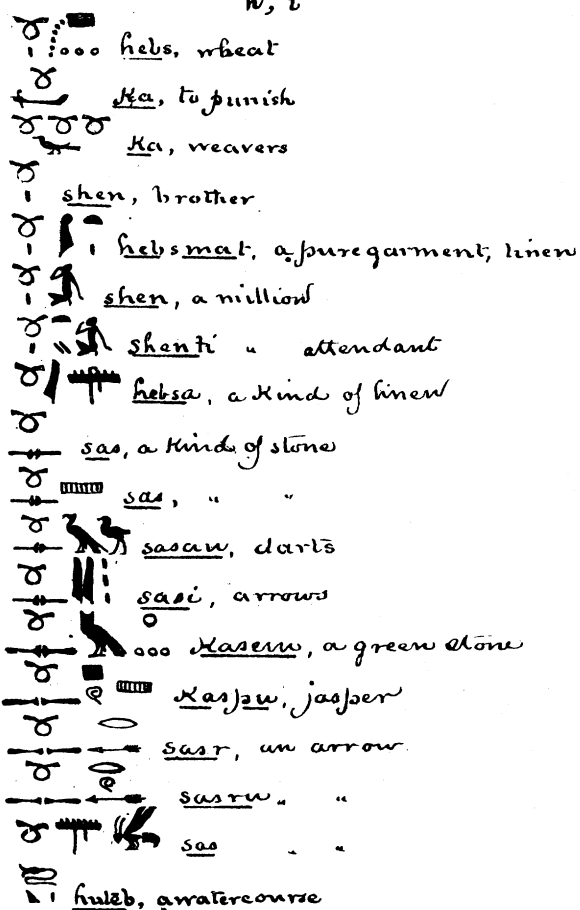 h, i
hebs, wheat
Ka, to punish
Ka, weavers
shen, brother
hebsmat, a pure garment, linen
shen, a million
shenti " attendant
hebsa, a kind of linen
sas, a kind of stone
sas, " "
sasau, darts
sasi, arrows
Kasem, a green stone
Kaspu, jasper
sasr, an arrow
sasru " "
sas " "
huleb, a watercourse